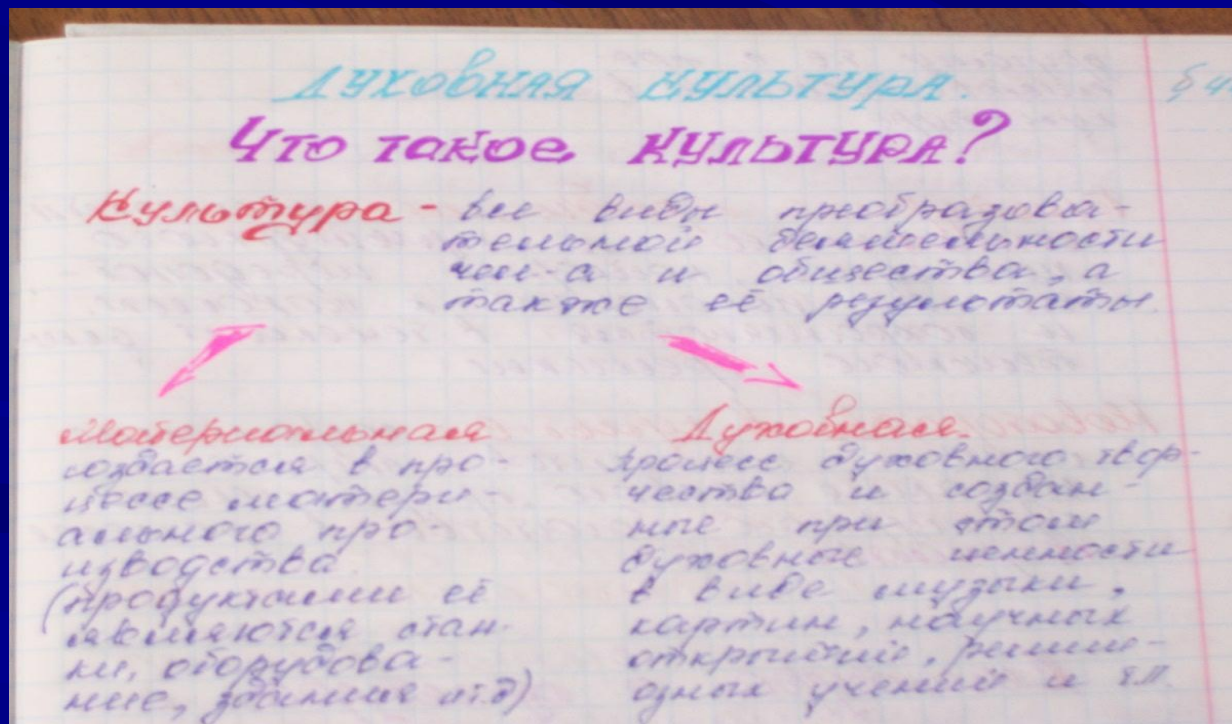 Духовная культура. § 4
Что такое культура?
Культура - все виды преобразова-
тельной деятельности
чел-а и общества, а
также её результаты.
Материальная
создается в про-
цессе матери-
ального про-
изводства
(продуктами её
являются стан-
ки, оборудова-
ние, здания и т.д)
Духовная.
процесс духовного твор-
чества и создан-
ные при этом
духовные ценности
в виде музыки,
картин, научных
открытий, религи-
озных учений и т.п.